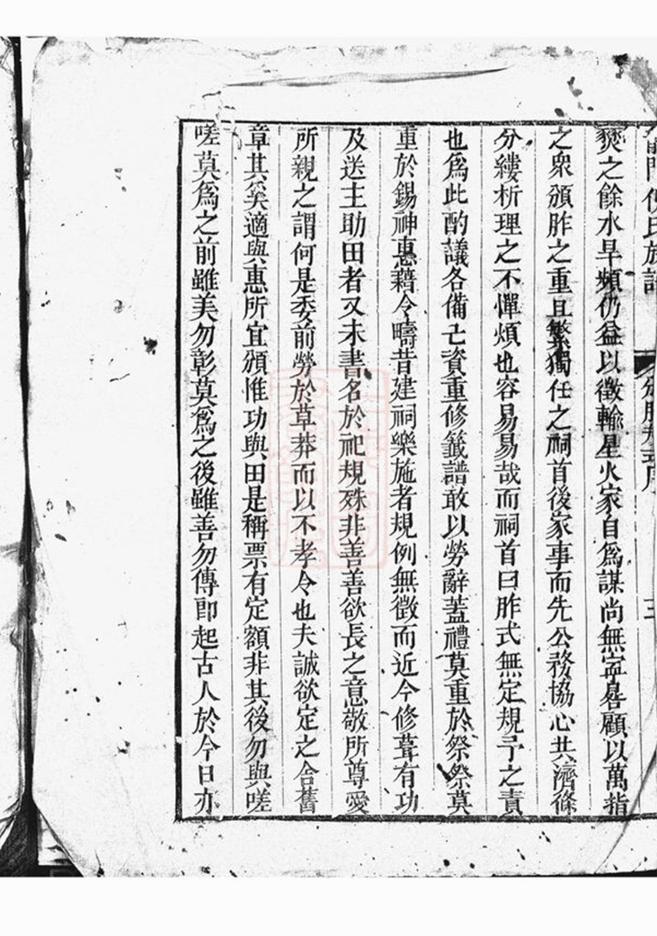 倪氏族譜
頒胙規式序
三
燹之餘水旱頻仍益以徵輸星火家自為謀尚無寧晷顧以萬指
之衆頒胙之重且繁獨任之祠首後家事而先公務協心共濟條
分縷析理之不憚煩也容易易哉而祠首曰胙式無定規予之責
也爲此酌議各備亡資重修籤譜敢以勞辭蓋禮莫重於祭祭莫
重於錫神惠藉令疇昔建祠樂施者規例無徵而近今修葺有功
及送主助田者又未書名於祀規殊非善善欲長之意敬所尊愛
所親之謂何是委前勞於草莽而以不孝令也夫誠欲定之舍舊
章其奚適與惠所宜頒惟功與田是稱票有定額非其後勿與嗟
嗟莫爲之前雖美勿彰莫爲之後雖善勿傳即起古人於今日亦